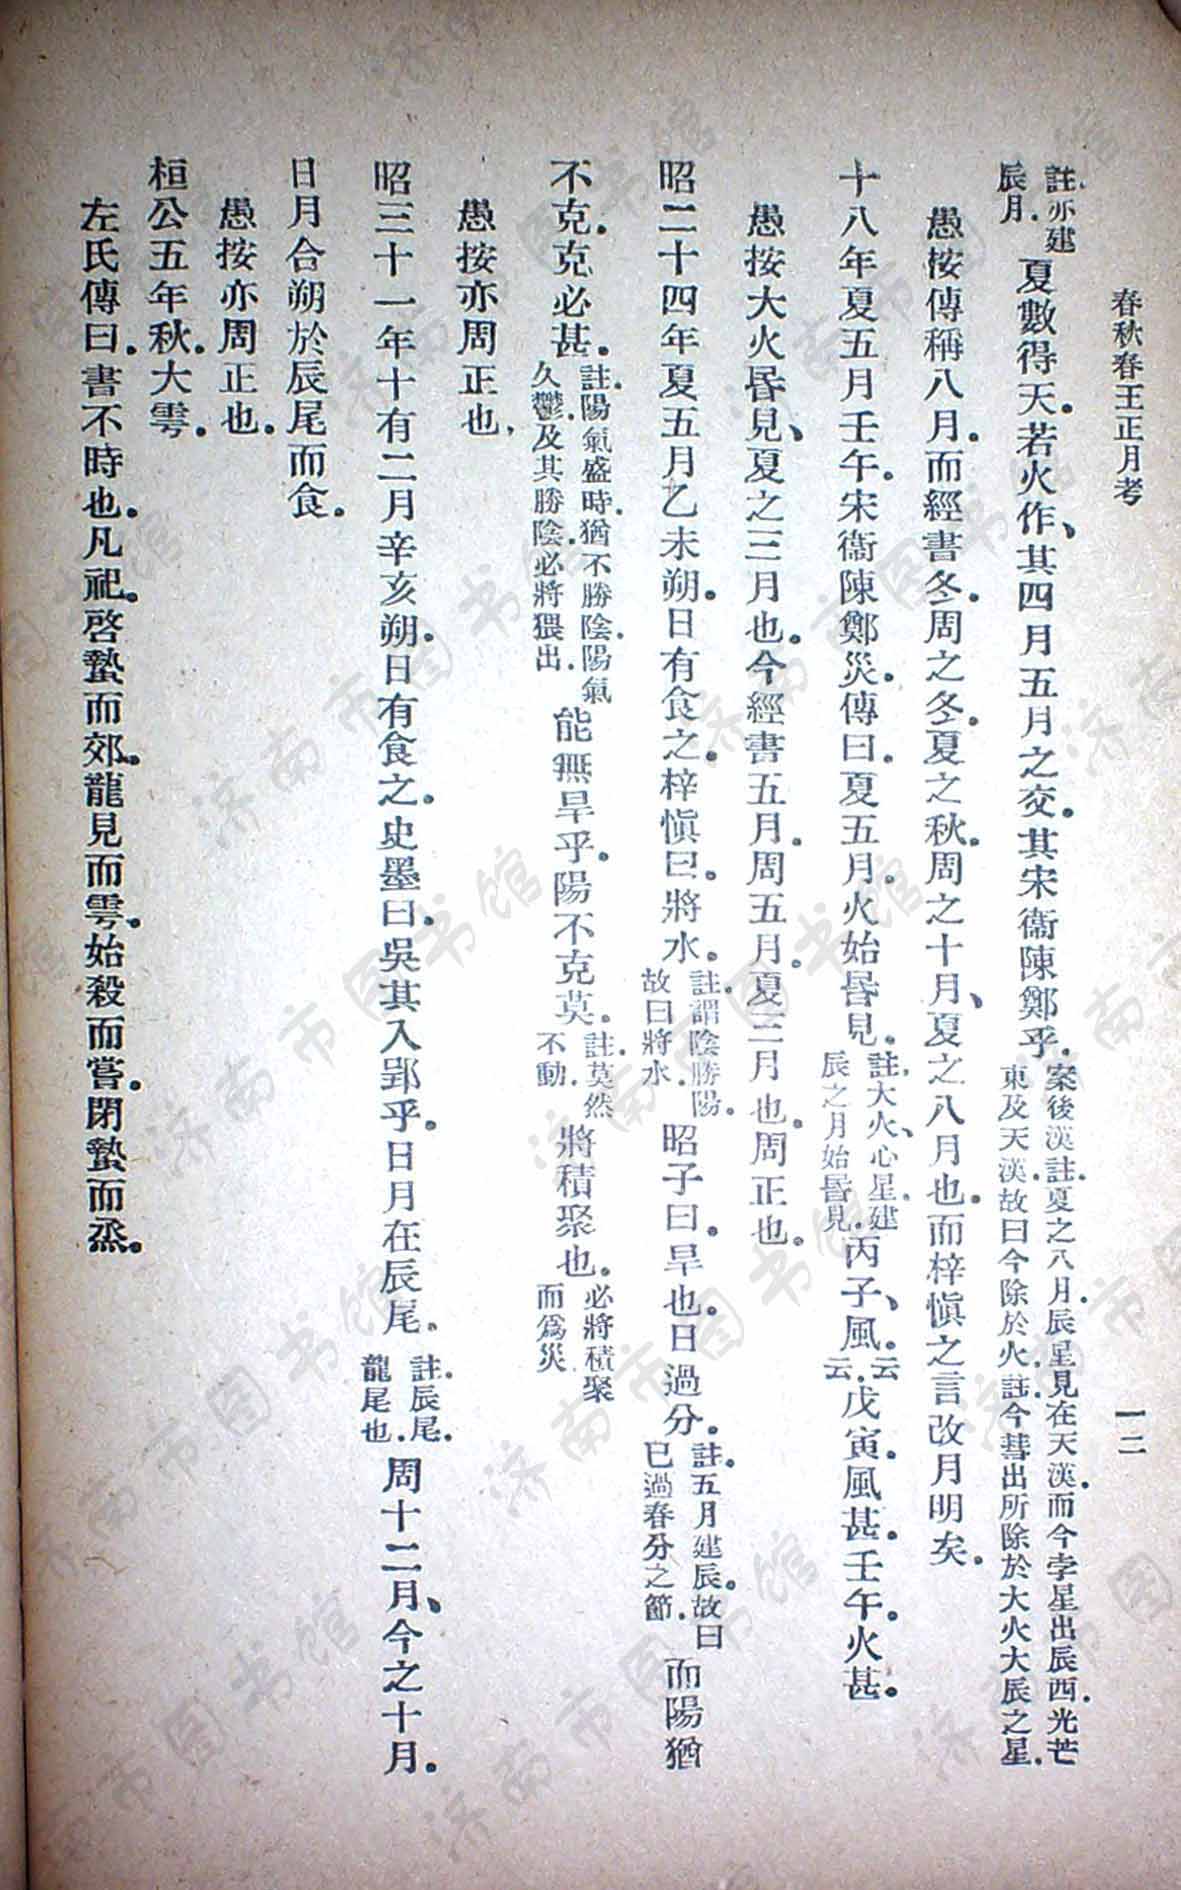 春秋春王正月考
一二
註、亦建辰月．夏數得天。若火作、其四月五月之交。其宋衞陳鄭乎．案後漢註．夏之八月．辰星見在天漢．而今孛星出辰西．光芒東及天漢．故曰今除於火．註今彗出所除於大火大辰之星．
愚按傳稱八月。而經書冬。周之冬。夏之秋。周之十月、夏之八月也。而梓愼之言改月明矣。
十八年夏五月壬午。宋衞陳鄭災。傳曰。夏五月。火始昏見．註、大火、心星．建辰之月始昏見．丙子、風。云云．戊寅風甚。壬午。火甚。
愚按大火昏見、夏之三月也。今經書五月。周五月。夏三月也。周正也。
昭二十四年夏五月乙未朔。日有食之。梓愼曰。將水。註．謂陰勝陽。故曰將水．昭子曰。旱也。日過分。註．五月建辰。故曰已過春分之節．而陽猶
不克。克必甚。註．陽氣盛時．猶不勝陰．陽氣久鬱．及其勝陰．必將猥出．能無旱乎。陽不克莫．註．莫然不動．將積聚也。必將積聚而爲災
愚按亦周正也，
昭三十一年十有二月辛亥朔。日有食之。史墨曰。吳其入郢乎。日月在辰尾、註．辰尾．龍尾也．周十二月、今之十月。
日月合朔於辰尾而食。
愚按亦周正也。
桓公五年秋。大雩。
左氏傳曰。書不時也。凡祀。啓蟄而郊。龍見而雩。始殺而嘗。閉蟄而烝。